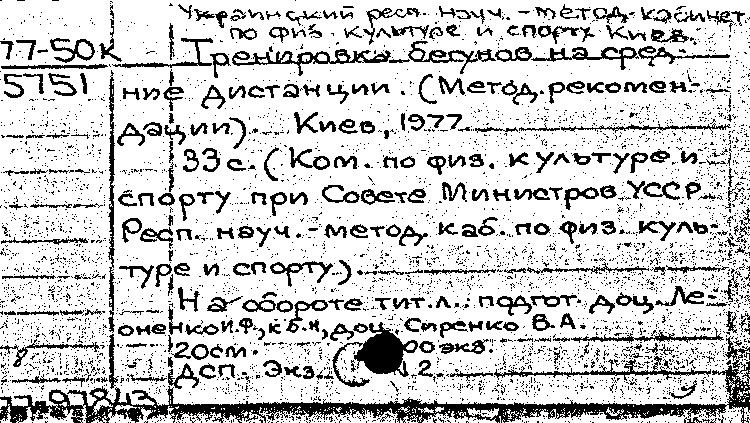 Украинский респ. науч.-метод. кабинет
по физ. культуре и спорту. Киев.
77-50к Тренировка бегунов на сред-
5751 ние дистанции. (Метод. рекомен-
дации). Киев, 1977.
33 с. (Ком. по физ. культуре и
спорту при Совете Министров УССР
Респ. науч.-метод. каб. по физ. куль-
туре и спорту).
На обороте тит. л.: подгот. доц. Ле-
оненко И.Ф., к.б.н., доц. Сиренко В.А.
20 см. 00 экз.
ДСП. Экз. 2
77-97843